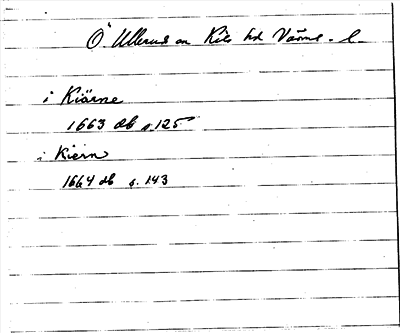 Ö. Ullerud sn Kils hd Värml. l.
i Kiärne
1663 db s. 125
i Kiern
1664 db s. 143